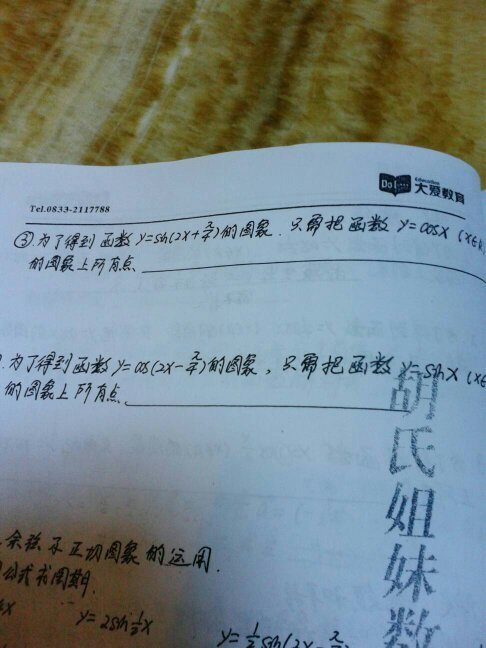 Do
Education
大爱教育
Tel.0833-2117788
③.为了得到函数y=sin(2x+π/4)的图象.只需把函数y=cosx(x∈R
的图象上所有点
.为了得到函数y=cos(2x-π/4)的图象,只需把函数y=sinx(x∈
的图象上所有点
胡氏姐妹数
余弦和正切图象的运用.
公式求周期.
y=2sin½x
y=½sin(2x-